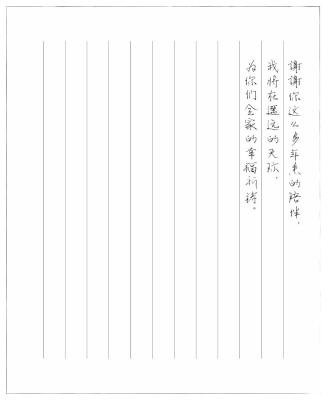 谢谢你这么多年来的陪伴，
我将在遥远的天际，
为你们全家的幸福祈祷。